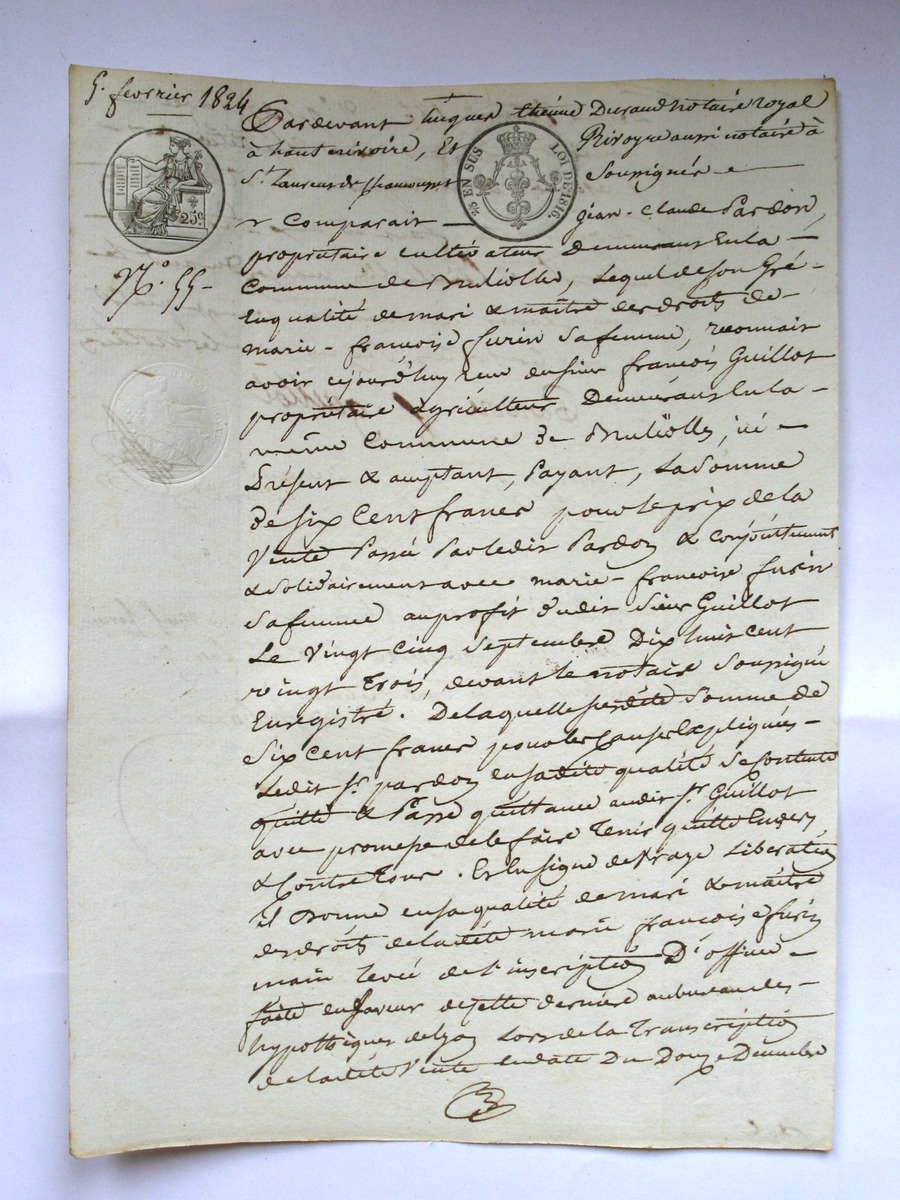 5. fevrier 1824
Pardevant hugues étienne Durand notaire royal
à hauterivoire, Et Rivoyre aussi notaire à
St. Laurent de chamousset Soussignés
EN SUS LOI DE 1816
25c.
Comparait jean-claude Pardon,
propriétaire cultivateur Demeurant En la
N.o 55
Commune de Brulliolle, Lequel de son Gré
En qualité de mari & maître des droits de
marie-françoise furin sa femme, reconnait
avoir cejourd'huy reçu du sieur françois Guillot
propriétaire agriculteur Demeurant En la
même Commune de Brulliolles, ici
Présent & acceptant, Payant, La Somme
De six Cent francs pour le prix de la
Vente Passée Par ledit Pardon & conjointement
& solidairement avec marie-françoise furin
sa femme au profit dudit sieur Guillot
Le Vingt Cinq Septembre Dix huit cent
vingt Trois, devant le notaire Soussigné
Enregistré. De laquelle susdite Somme de
Six Cent francs pour les causes Expliquées
Ledit Sr. pardon en sadite qualité se contente
quitte & Passe quittance audit Sr. Guillot
avec promesse de le faire Tenir quitte Envers
& Contre Tous. En signe de vraye Libération
il Donne en sa qualité de mari & maître
des droits de ladite marie françoise furin
main levée de l'inscription D'office
faite en faveur de cette dernière au bureau des
hypothèques de Lyon Lors de la Transcription
de ladite Vente en date Du Douze Décembre